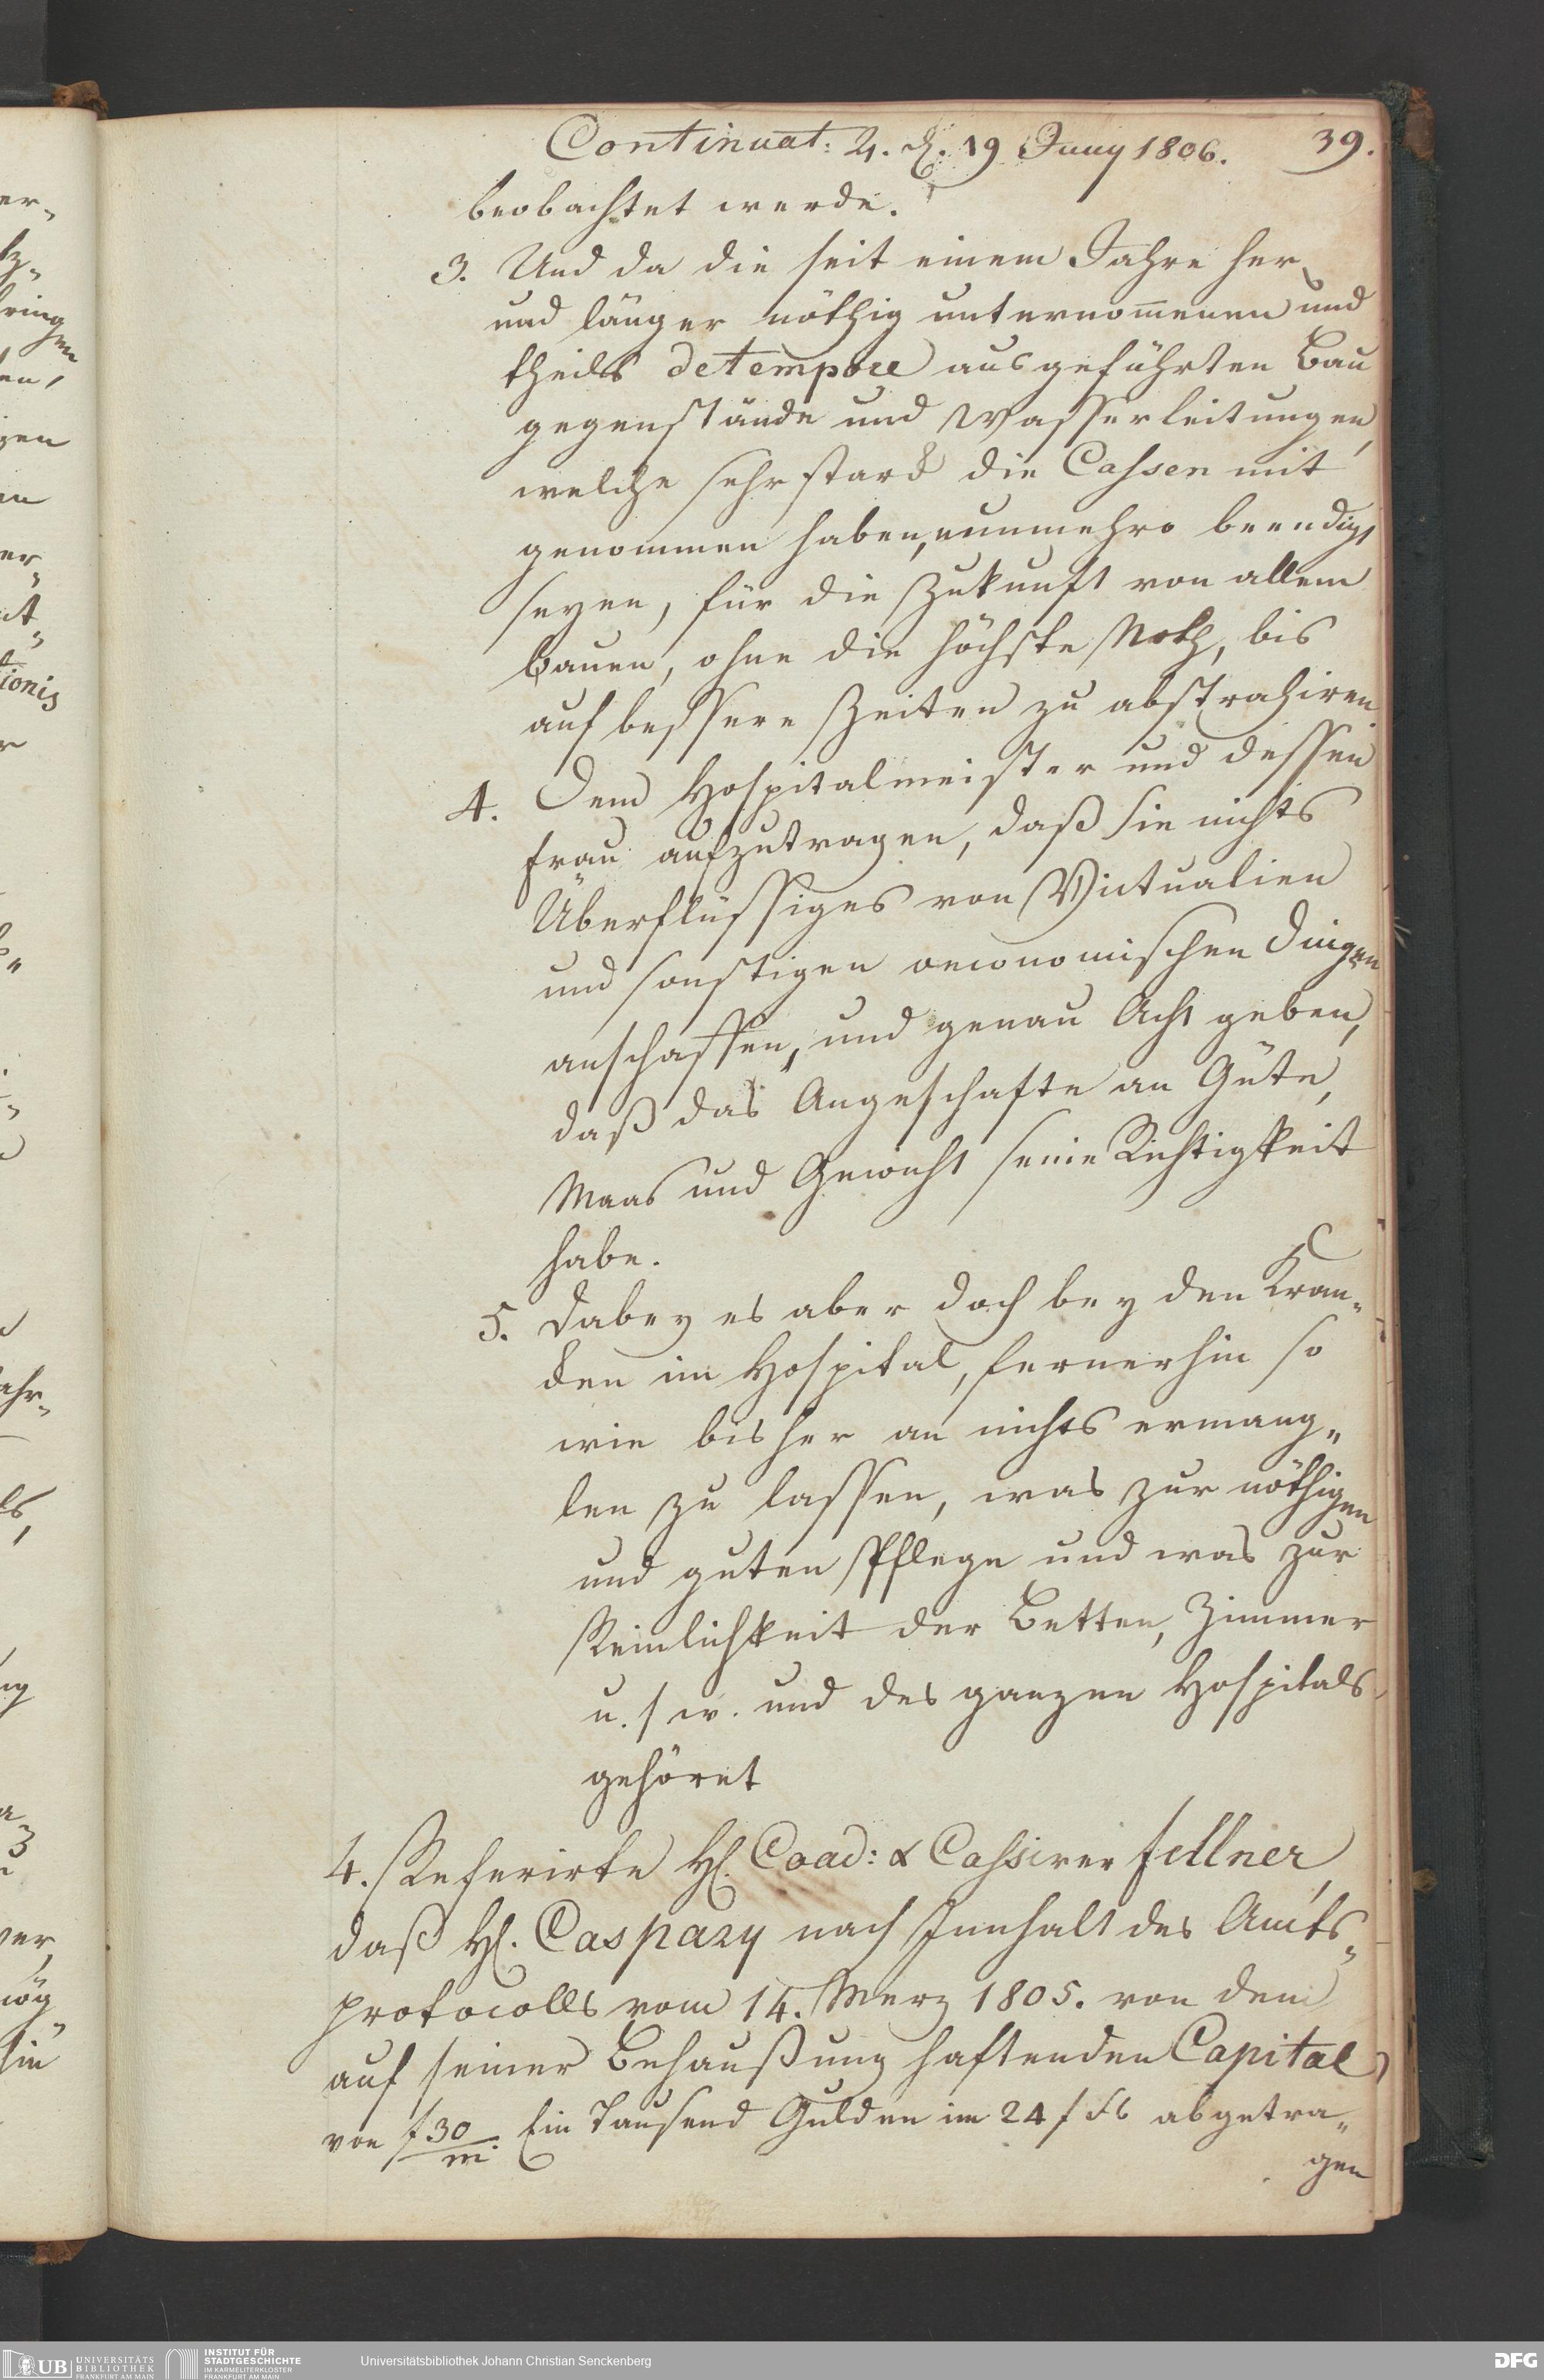 Continuat: 4. d. 19 Juny 1806. 39.
beobachtet werde.
3. Und da die seit einem Jahre her
und länger nöthig unternom̅enen und
theils de tempore ausgeführten Bau
gegenstände und Wasserleitungen,
welche sehr starck die Cassen mit
genommen haben, nunmehro beendigt
seyen, für die Zukunft von allem
bauen, ohne die höchste Noth, bis
auf bessere Zeiten zu abstrahiren.
4. Dem Hospitalmeister und dessen
Frau aufzutragen, daß sie nichts
Überflüssiges von Victualien
und sonstigen oeconomischen Dingen
anschaffen, und genau Acht geben,
daß das Angeschafte an Güte,
Maas und Gewicht seine Richtigkeit
habe.
5. Dabey es aber doch bey den Kran„
cken im Hospital, fernerhin so
wie bisher an nichts ermang„
len zu lassen, was zur nöthigen
und guten Pflege und was zur
Reinlichkeit der Betten, Zimmer
u. s w. und des ganzen Hospitals
gehöret
4. Referirte H. Coad: & Cassirer Fellner,
daß H. Caspary nach Innhalt des Amts„
protocolls vom 14. Merz 1805. von dem
auf seiner Behaußung haftenden Capital
von f 30/m. Ein Tausend Gulden im 24 f Fß abgetra„
gen
er„
ringen
en,
gen
en
er„
it„
tionis
ahr„
ls,
ng
ver„
mög„
hin
UB UNIVERSITÄTS
BIBLIOTHEK
FRANKFURT AM MAIN
INSTITUT FÜR
STADTGESCHICHTE
IM KARMELITERKLOSTER
FRANKFURT AM MAIN
Universitätsbibliothek Johann Christian Senckenberg
DFG